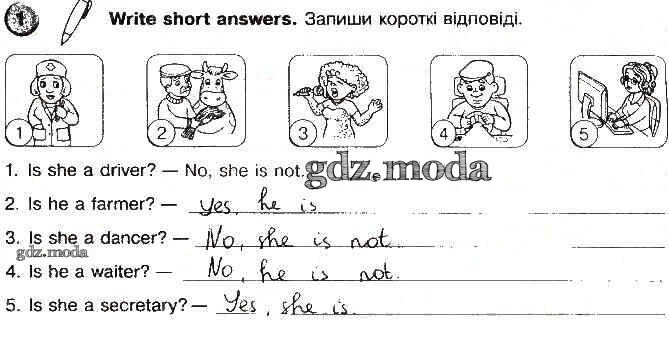 1 Write short answers. Запиши короткі відповіді.
1 2 3 4 5
1. Is she a driver? — No, she is not. gdz.moda
2. Is he a farmer? — yes, he is
3. Is she a dancer? — No, she is not.
gdz.moda
4. Is he a waiter? — No, he is not.
5. Is she a secretary? — Yes, she is.